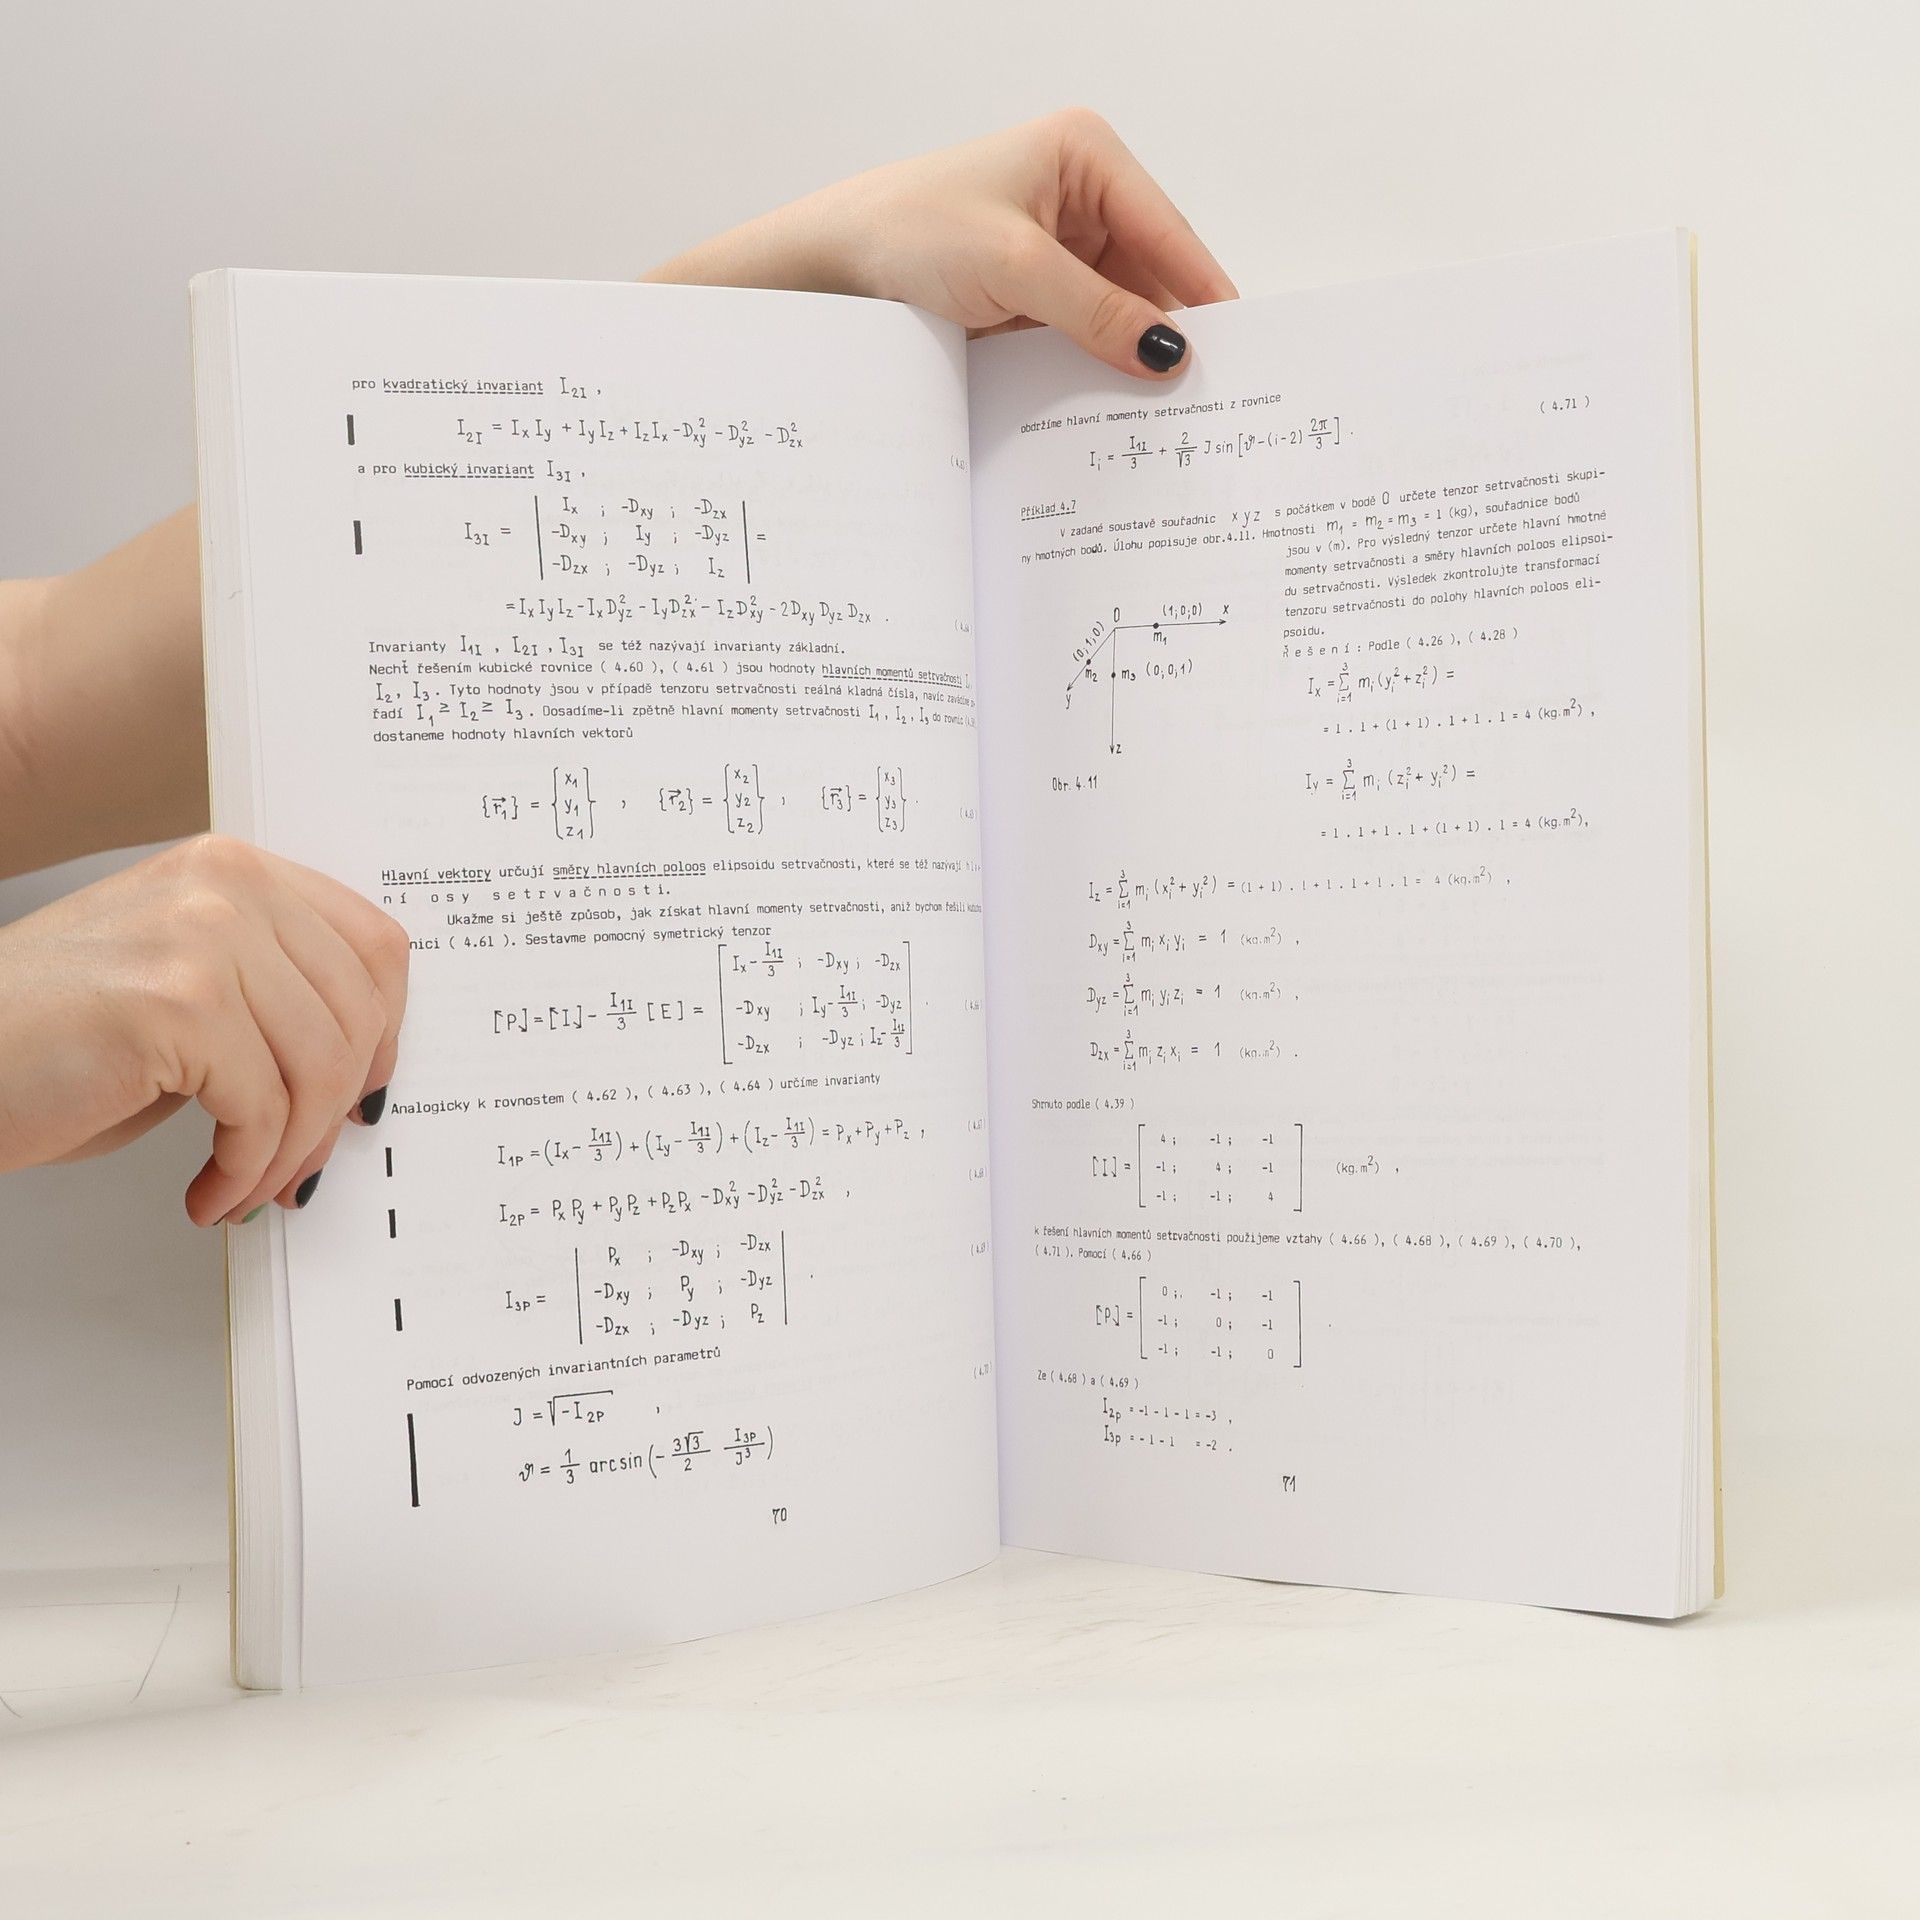 pro kvadratický invariant I₂I ,
I₂I = Ix Iy + Iy Iz + Iz Ix - Dxy² - Dyz² - Dzx²
a pro kubický invariant I₃I ,
I₃I = | Ix ; -Dxy ; -Dzx |
| -Dxy ; Iy ; -Dyz | =
| -Dzx ; -Dyz ; Iz |
= Ix Iy Iz - Ix Dyz² - Iy Dzx² - Iz Dxy² - 2Dxy Dyz Dzx .
Invarianty I₁I , I₂I , I₃I se též nazývají invarianty základní.
Nechť řešením kubické rovnice ( 4.60 ), ( 4.61 ) jsou hodnoty hlavních momentů setrvačnosti
I₂, I₃. Tyto hodnoty jsou v případě tenzoru setrvačnosti reálná kladná čísla, navíc
řadí I₁ ≥ I₂ ≥ I₃ . Dosadíme-li zpětně hlavní momenty setrvačnosti I₁ , I₂ , I₃ do rovnic
dostaneme hodnoty hlavních vektorů
{r⃗₁} = {x₁ y₁ z₁} , {r⃗₂} = {x₂ y₂ z₂} , {r⃗₃} = {x₃ y₃ z₃} .
Hlavní vektory určují směry hlavních poloos elipsoidu setrvačnosti, které se též nazývají
n í o s y s e t r v a č n o s t i.
Ukažme si ještě způsob, jak získat hlavní momenty setrvačnosti, aniž bychom řešili
nici ( 4.61 ). Sestavme pomocný symetrický tenzor
⌈P⌋ = ⌈I⌋ - I₁I/3 [E] = [ Ix - I₁I/3 ; -Dxy ; -Dzx
-Dxy ; Iy - I₁I/3 ; -Dyz
-Dzx ; -Dyz ; Iz - I₁I/3 ] .
Analogicky k rovnostem ( 4.62 ), ( 4.63 ), ( 4.64 ) určíme invarianty
I₁P = (Ix - I₁I/3) + (Iy - I₁I/3) + (Iz - I₁I/3) = Px + Py + Pz ,
I₂P = Px Py + Py Pz + Pz Px - Dxy² - Dyz² - Dzx² ,
I₃P = | Px ; -Dxy ; -Dzx |
| -Dxy ; Py ; -Dyz | .
| -Dzx ; -Dyz ; Pz |
Pomocí odvozených invariantních parametrů
J = √-I₂P ,
ϑ = 1/3 arcsin (- 3√3/2 I₃P/J³)
70
obdržíme hlavní momenty setrvačnosti z rovnice
Ii = I₁I/3 + 2/√3 J sin [ϑ - (i-2) 2π/3] . ( 4.71 )
Příklad 4.7
V zadané soustavě souřadnic x y z s počátkem v bodě O určete tenzor setrvačnosti skupi-
ny hmotných bodů. Úlohu popisuje obr.4.11. Hmotnosti m₁ = m₂ = m₃ = 1 (kg), souřadnice bodů
jsou v (m). Pro výsledný tenzor určete hlavní hmotné
momenty setrvačnosti a směry hlavních poloos elipsoi-
du setrvačnosti. Výsledek zkontrolujte transformací
tenzoru setrvačnosti do polohy hlavních poloos eli-
psoidu.
O (1;0;0) x
m₁
(0;1;0)
m₂
m₃ (0;0;1)
y
z
Obr. 4.11
Ř e š e n í : Podle ( 4.26 ), ( 4.28 )
Ix = Σ³ᵢ₌₁ mi (yi² + zi²) =
= 1 . 1 + (1 + 1) . 1 + 1 . 1 = 4 (kg.m²) ,
Iy = Σ³ᵢ₌₁ mi (zi² + yi²) =
= 1 . 1 + 1 . 1 + (1 + 1) . 1 = 4 (kg.m²),
Iz = Σ³ᵢ₌₁ mi (xi² + yi²) = (1 + 1) . 1 + 1 . 1 + 1 . 1 = 4 (kg.m²) ,
Dxy = Σ³ᵢ₌₁ mi xi yi = 1 (kg.m²) ,
Dyz = Σ³ᵢ₌₁ mi yi zi = 1 (kg.m²) ,
Dzx = Σ³ᵢ₌₁ mi zi xi = 1 (kg.m²) .
Shrnuto podle ( 4.39 )
⌈I⌋ = [ 4 ; -1 ; -1
-1 ; 4 ; -1
-1 ; -1 ; 4 ] (kg.m²) ,
k řešení hlavních momentů setrvačnosti použijeme vztahy ( 4.66 ), ( 4.68 ), ( 4.69 ), ( 4.70 ),
( 4.71 ). Pomocí ( 4.66 )
⌈P⌋ = [ 0 ; -1 ; -1
-1 ; 0 ; -1
-1 ; -1 ; 0 ] .
Ze ( 4.68 ) a ( 4.69 )
I₂p = -1 - 1 - 1 = -3 ,
I₃p = - 1 - 1 = -2 .
71